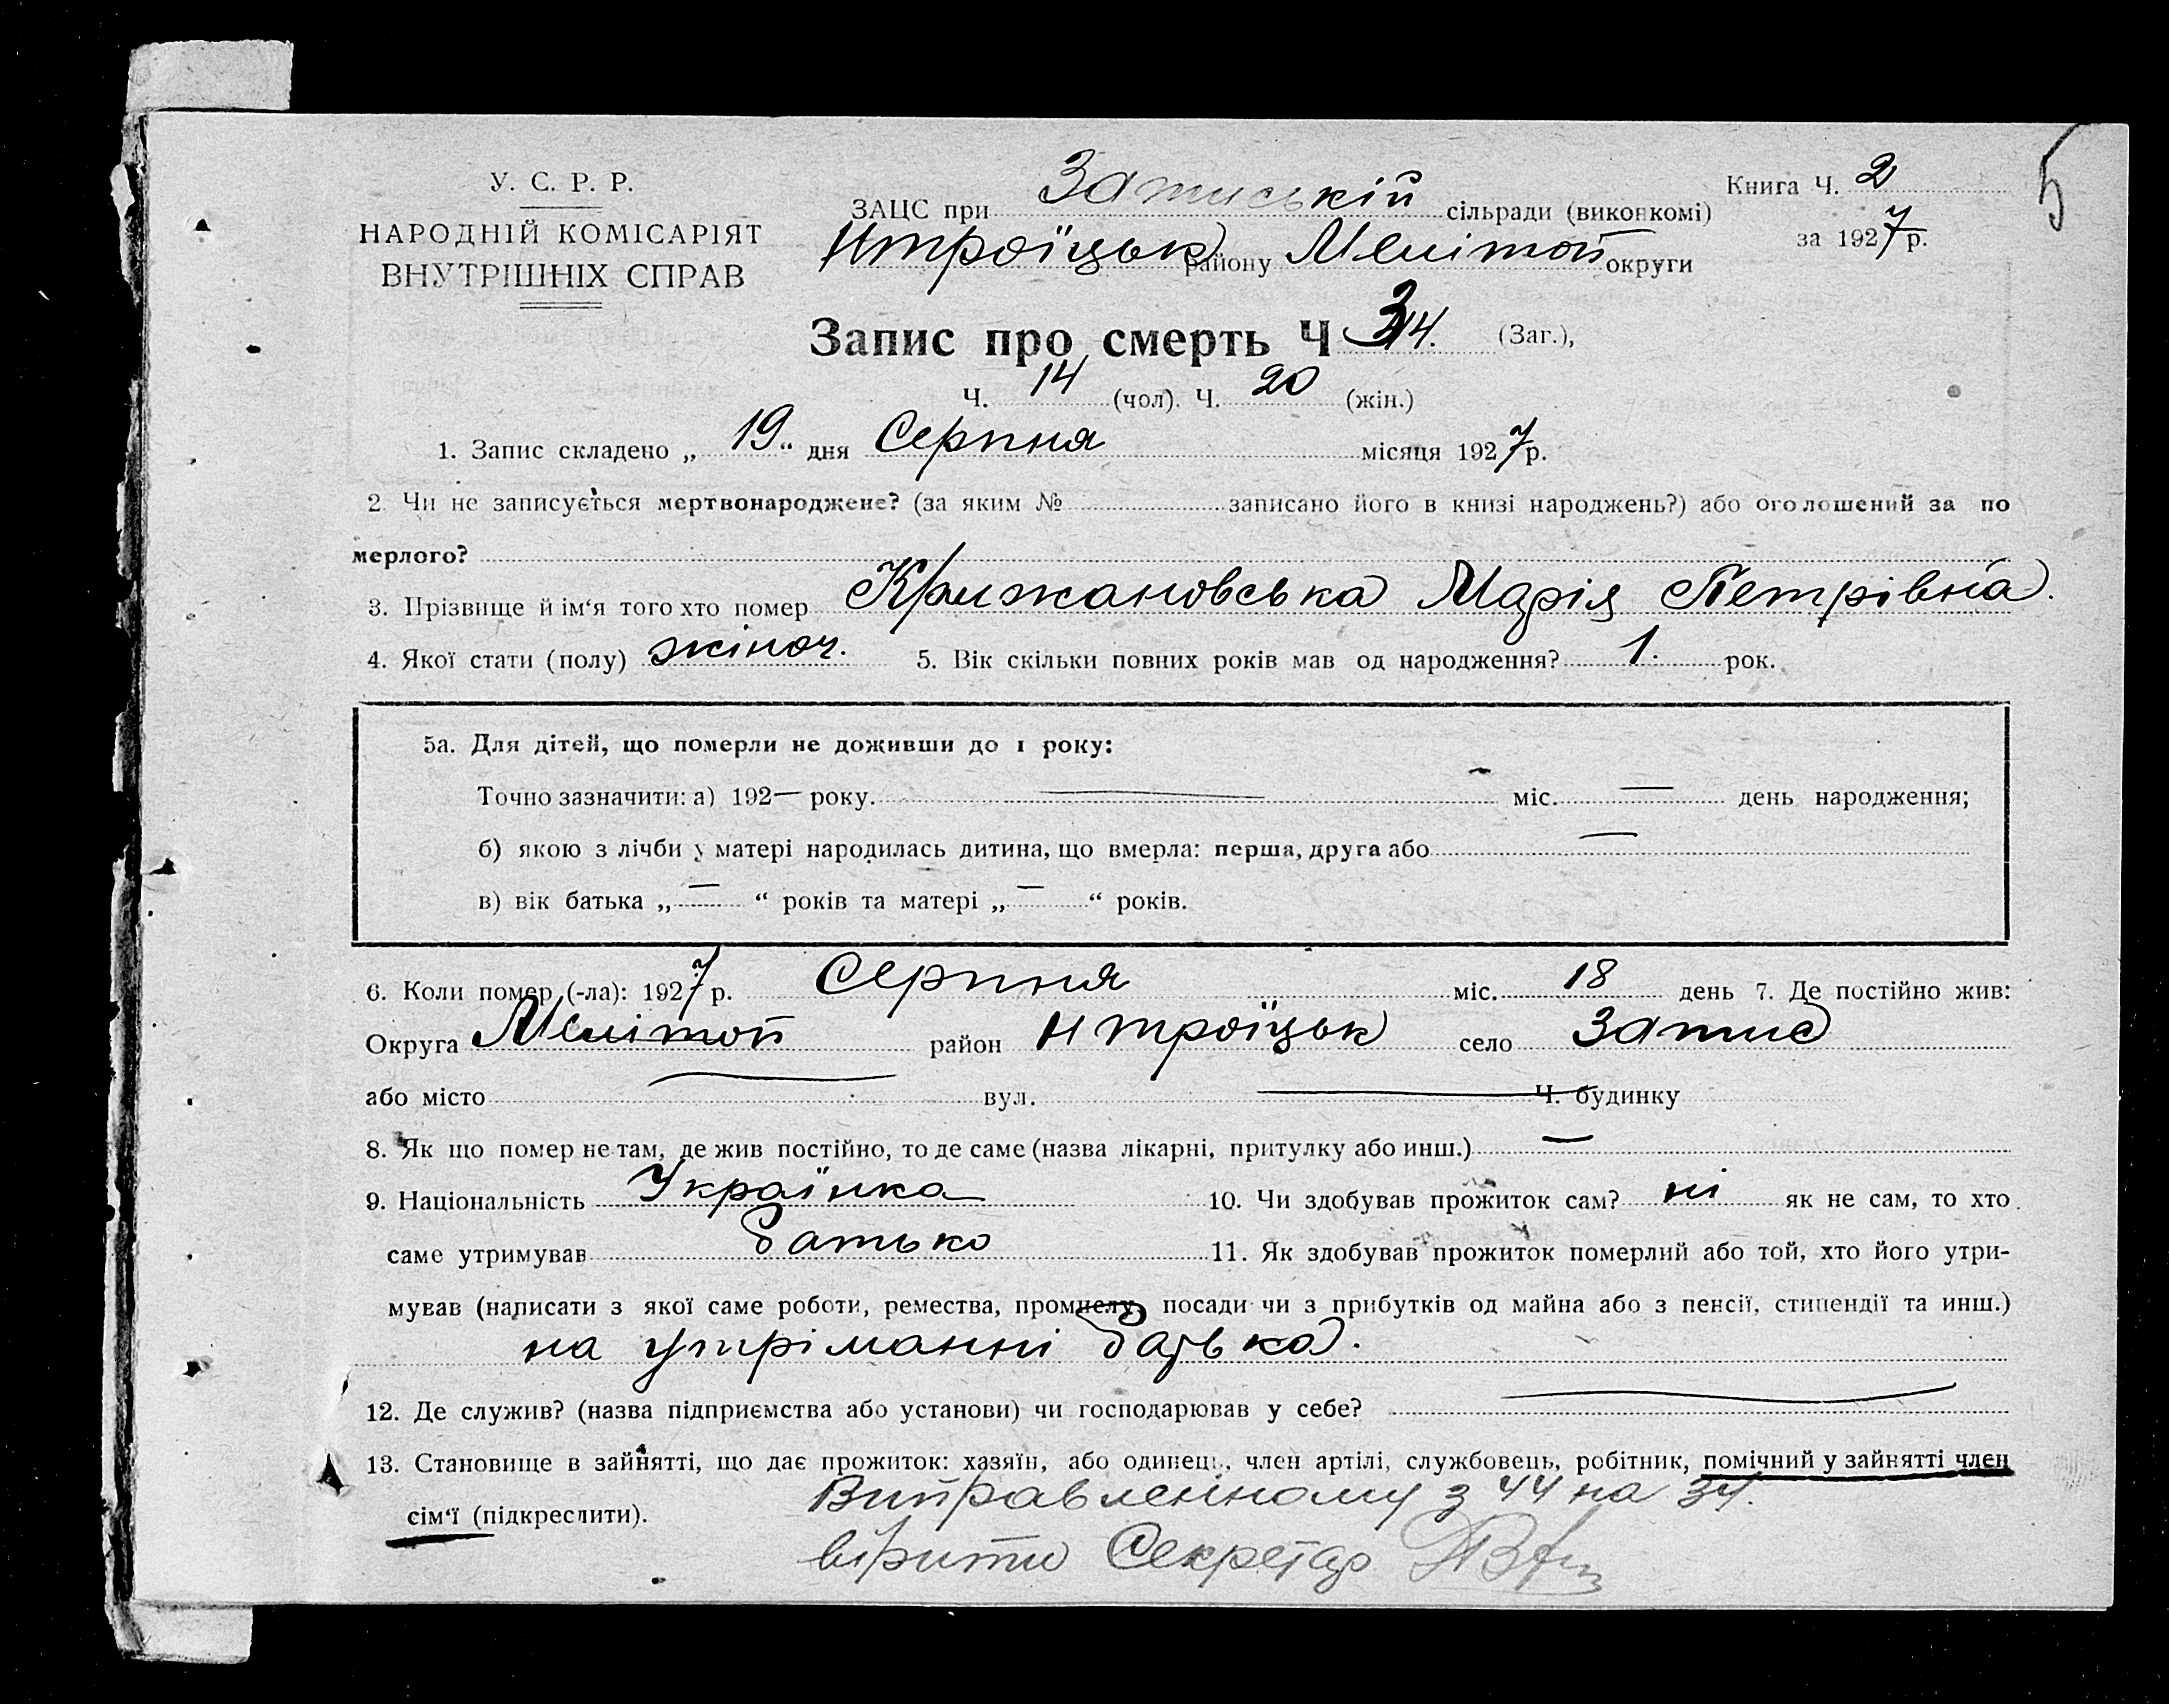 5
У. С. Р. Р.
НАРОДНІЙ КОМІСАРІЯТ
ВНУТРІШНІХ СПРАВ
ЗАЦС при Затиській сільради (виконкомі)
Нтроїцьк району Мелітоп округи
Книга Ч. 2
за 1927 р.
Запис про смерть Ч 34. (Заг.),
Ч. 14 (чол). Ч. 20 (жін.)
1. Запис складено „ 19 “ дня Серпня місяця 1927 р.
2 Чи не записується мертвонароджене? (за яким № записано його в книзі народжень?) або оголошений за по
мерлого?
3. Прізвище й ім‘я того хто помер Крижановська Марія Петрівна.
4. Якої стати (полу) жіноч. 5. Вік скільки повних років мав од народження? 1. рок.
5а. Для дітей, що померли не доживши до 1 року:
Точно зазначити: а) 192— року. — міс. — день народження;
б) якою з лічби у матері народилась дитина, що вмерла: перша, друга або —
в) вік батька „ — “ років та матері „ — “ років.
6. Коли помер (-ла): 1927 р. Серпня міс. 18 день 7. Де постійно жив:
Округа Мелітоп район Нтроїцьк село Затис
або місто — вул. — Ч. будинку
8. Як що помер не там, де жив постійно, то де саме (назва лікарні, притулку або инш.) —
9. Національність Українка 10. Чи здобував прожиток сам? ні як не сам, то хто
саме утримував батько 11. Як здобував прожиток померлий або той, хто його утри-
мував (написати з якої саме роботи, ремества, промислу, посади чи з прибутків од майна або з пенсії, стипендії та инш.)
на утріманні батька.
12. Де служив? (назва підприємства або установи) чи господарював у себе? —
13. Становище в зайнятті, що дає прожиток: хазяїн, або одинець, член артілі, службовець, робітник, помічний у зайнятті член
сім‘ї (підкреслити).
Виправленному з 44 на 34.
вірити Секретар